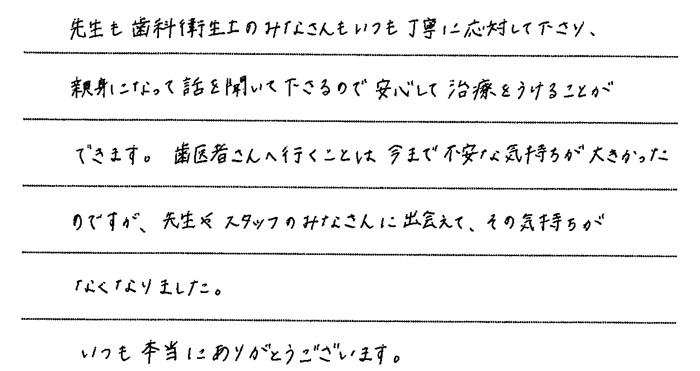 先生も歯科衛生士のみなさんもいつも丁寧に応対して下さり、
親身になって話を聞いて下さるので安心して治療をうけることが
できます。歯医者さんへ行くことは今まで不安な気持ちが大きかった
のですが、先生やスタッフのみなさんに出会えて、その気持ちが
なくなりました。
いつも本当にありがとうございます。